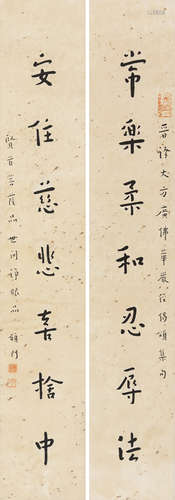 常樂柔和忍辱法
晉譯大方廣佛華嚴經偈頌集句
安住慈悲喜捨中
賢首菩薩品 世間淨眼品